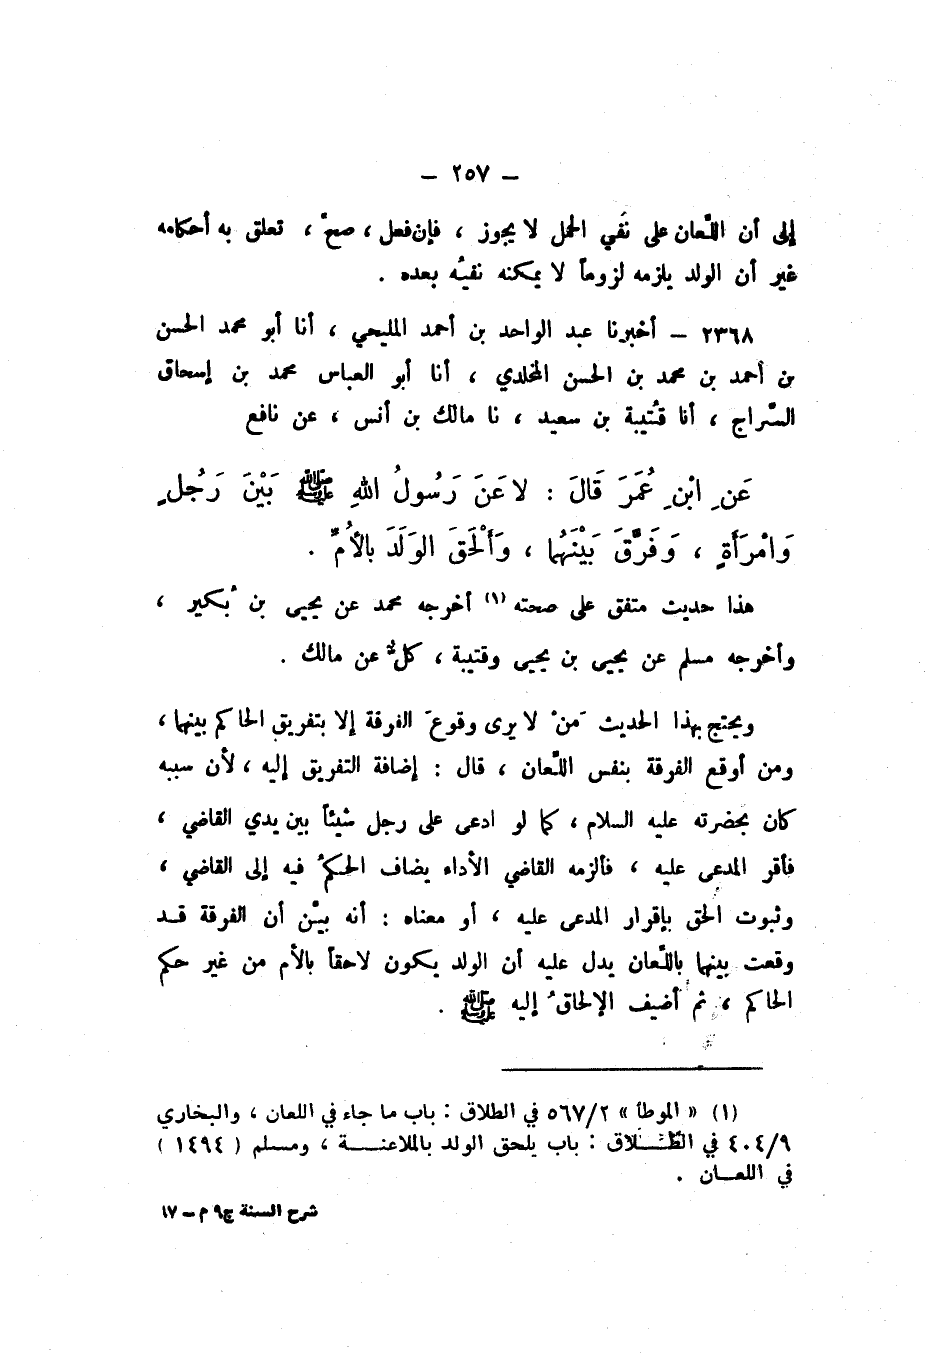 – ٢٥٧ –
إلى أن اللّعان على نَفي الحمل لا يجوز ، فإن فعل ، صحّ ، تعلق به أحكامه
غير أن الولد يلزمه لزوماً لا يمكنه نفيُه بعده .
٢٣٦٨ – أخبرنا عبد الواحد بن أحمد المليحي ، أنا أبو محمد الحسن
بن أحمد بن محمد بن الحسن المخلدي ، أنا أبو العباس محمد بن إسحاق
السّراج ، أنا قُتيبة بن سعيد ، نا مالك بن أنس ، عن نافع
عَنِ ابْنِ عُمَرَ قَالَ : لاعَنَ رَسُولُ اللهِ ﷺ بَيْنَ رَجُلٍ
وَامْرَأَةٍ ، وَفَرَّقَ بَيْنَهُما ، وَأَلْحَقَ الوَلَدَ بالأُمِّ .
هذا حديث متفق على صحته (١) أخرجه محمد عن يحيى بن بُكير ،
وأخرجه مسلم عن يحيى بن يحيى وقتيبة ، كلٌّ عن مالك .
ويحتج بهذا الحديث مَنْ لا يرى وقوعَ الفرقة إلا بتفريق الحاكم بينهما ،
ومن أوقع الفرقة بنفس اللّعان ، قال : إضافة التفريق إليه ، لأن سببه
كان بحضرته عليه السلام ، كما لو ادعى على رجل شيئاً بين يدي القاضي ،
فأقر المدعى عليه ، فألزمه القاضي الأداء يضاف الحكمُ فيه إلى القاضي ،
وثبوت الحق بإقرار المدعى عليه ، أو معناه : أنه بيّن أن الفرقة قد
وقعت بينهما باللّعان يدل عليه أن الولد يكون لاحقاً بالأم من غير حكم
الحاكم ، ثم أضيف الإلحاقُ إليه ﷺ .
(١) « الموطأ » ٥٦٧/٢ في الطلاق : باب ما جاء في اللعان ، والبخاري
٤٠٤/٩ في الطّلاق : باب يلحق الولد بالملاعنة ، ومسلم ( ١٤٩٤ )
في اللعان .
شرح السنة ج٩ م – ١٧